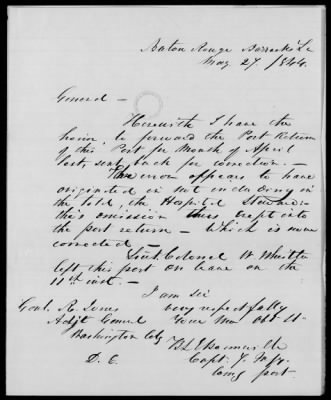 Baton Rouge Barracks La
May 27. 1844.
General —
Herewith I have the
honor to forward the Post Return
of this Post for Month of April
last, sent back for correction. —
The error appears to have
originated in not
in the the Hospital Steward —
this omission crept into
the post return — Which is now
corrected —
Lieut. Colonel W. Whistler
left this post on leave on the
11th inst. —
I am Sir
very respectfully
Genl. R. Jones
Your Obt. St
Adjt General
Washington City
D. C.
Capt. 7. Infy.
Comg post